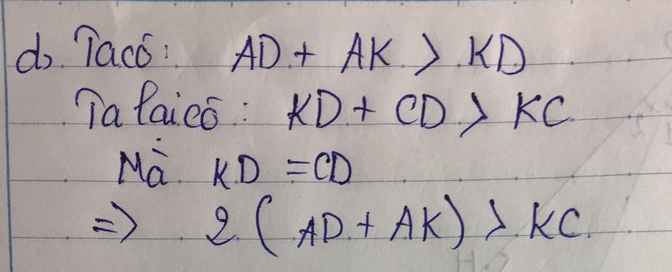 d, Ta có: AD + AK > KD
Ta lại có: KD + CD > KC
Mà KD = CD
=> 2 ( AD + AK ) > KC